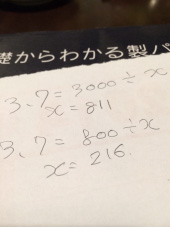 礎からわかる製パ
3、7=3000÷x
x=811
3、7=800÷x
x=216.